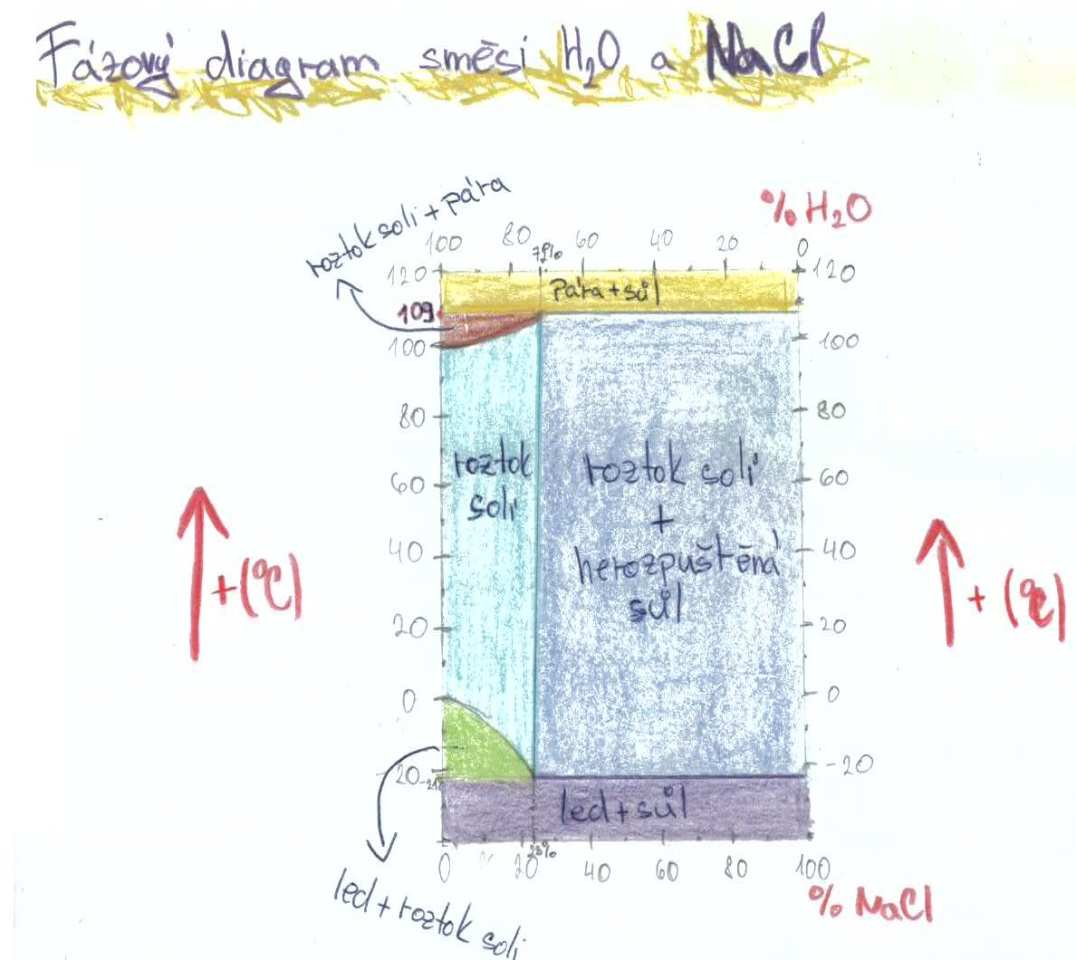 Fázový diagram směsi H₂O a NaCl
roztok soli + pára
% H₂O
100 80 60 40 20 0
120 pára + sůl 120
109
100 100
80 80
roztok
soli
roztok soli
+
nerozpuštěná
sůl
60 60
40 40
+(°C)
+ (°C)
20 20
0 0
-20 -20
led + sůl
0 20 23% 40 60 80 100
% NaCl
led + roztok soli